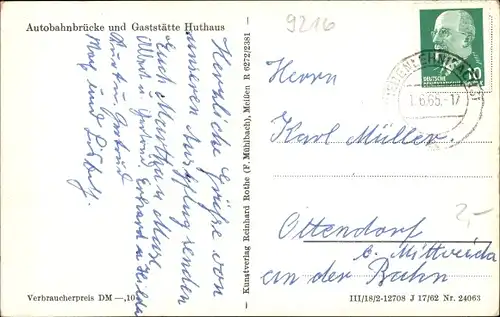 Autobahnbrücke und Gaststätte Huthaus
9216
Herzliche Grüße von
unserem Ausflug senden
Euch Martha u. Max
Kurt u. Gertrud
Max und
Verbraucherpreis DM —,10
Kunstverlag Reinhard Rothe (F. Mühlbach), Meißen R 6272/2381
DEUTSCHE
DEMOKRATISCHE REPUBLIK
10
1.6.65.-17
Herrn
Karl Müller.
Ottendorf
b. Mittweida
an der Bahn
2,-
III/18/2-12708 J 17/62 Nr. 24063